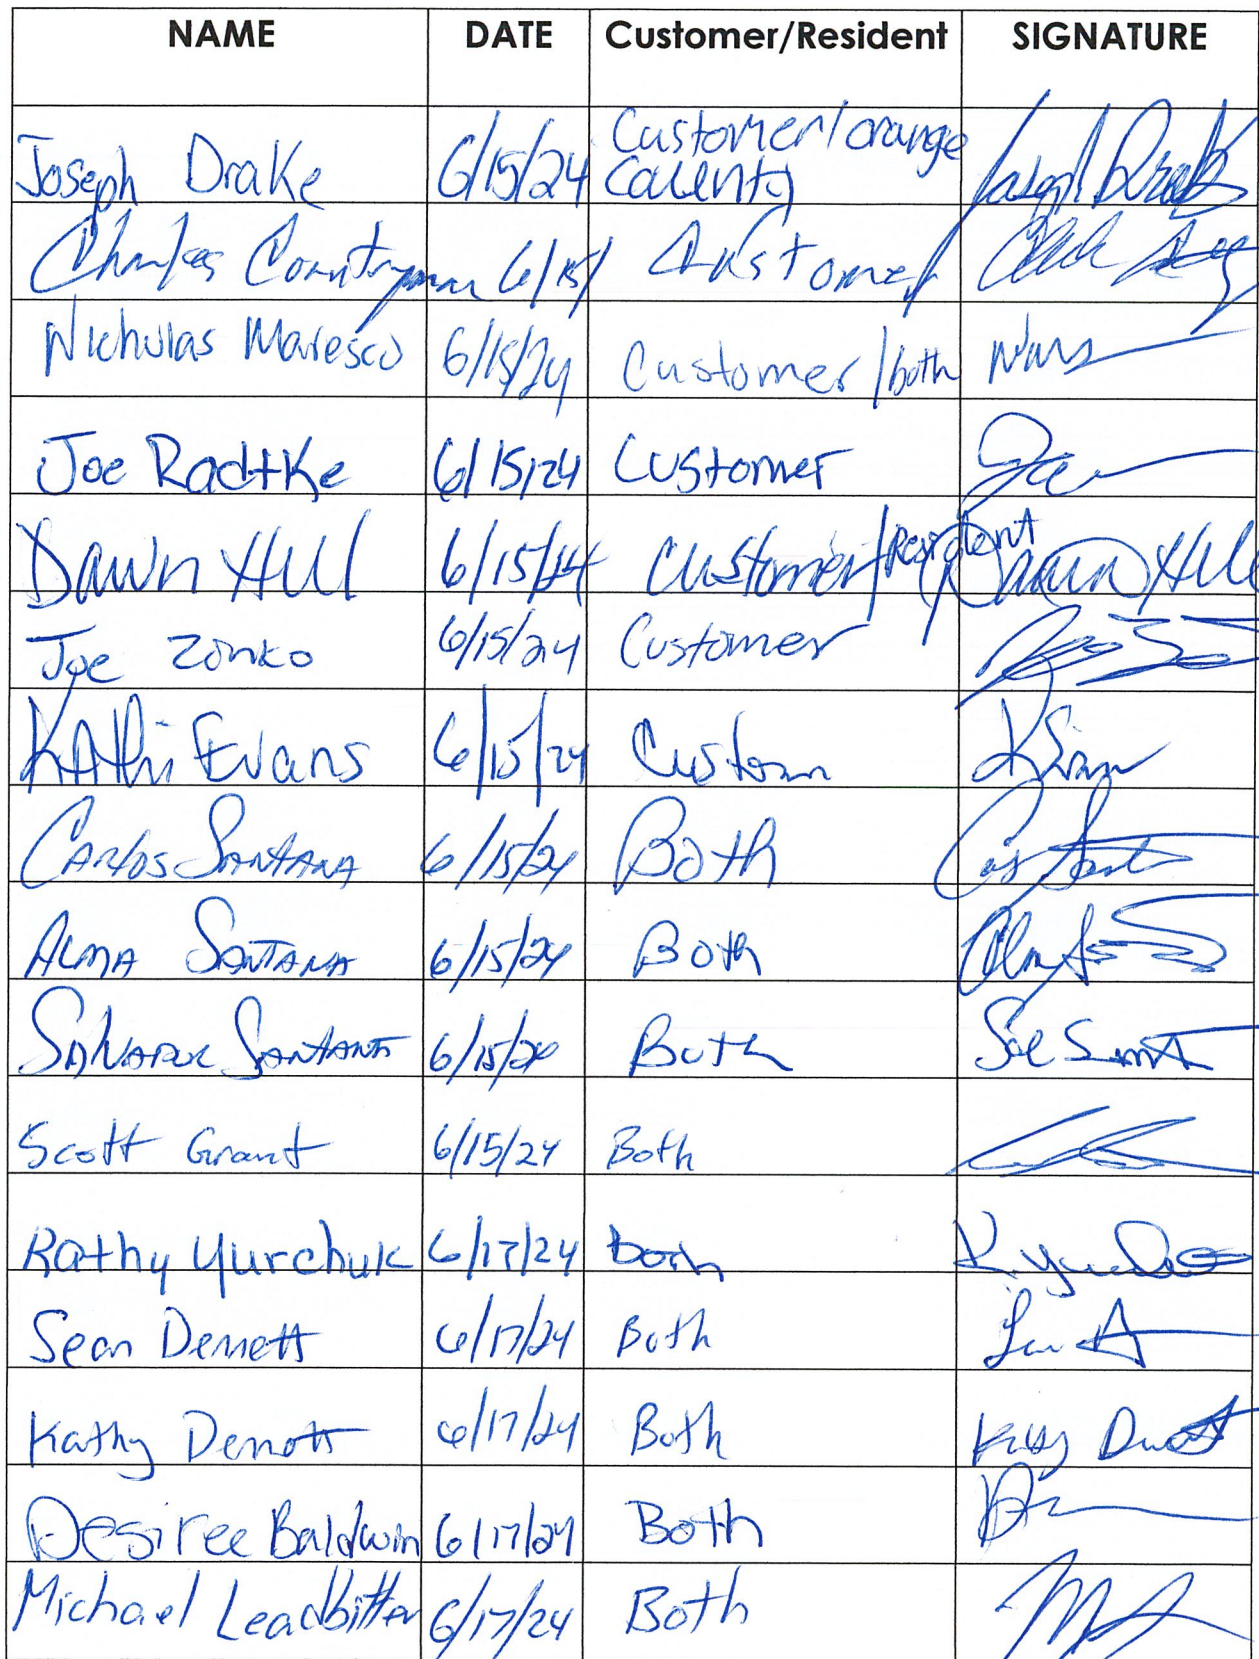 NAME DATE Customer/Resident SIGNATURE
Joseph Drake 6/15/24 Customer/orange
Couenty Joseph Drake
Charles Countryman 6/15/ Customer
Nicholas Maresco 6/15/24 Customer/both
Joe Radtke 6/15/24 Customer
Dawn Hill 6/15/24 Customer/Resident Dawn Hill
Joe Zonko 6/15/24 Customer
Kathi Evans 6/15/24 Custom
Carlos Santana 6/15/24 Both
Alma Santana 6/15/24 Both
Salvador Santana 6/15/24 Both
Scott Grant 6/15/24 Both
Kathy Yurchuk 6/17/24 both
Sean Demott 6/17/24 Both
Kathy Demott 6/17/24 Both
Desiree Baldwin 6/17/24 Both
Michael Leadbitter 6/17/24 Both